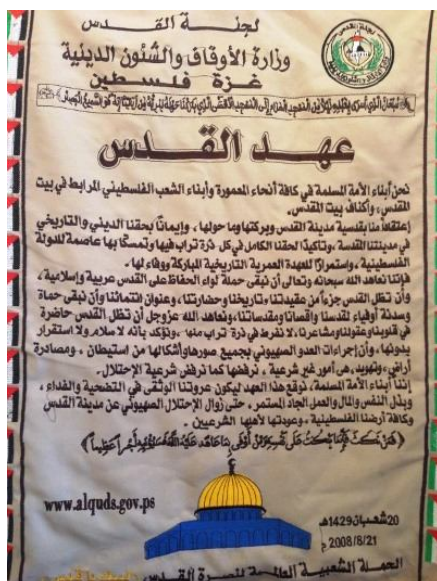 لجنة القدس
وزارة الأوقاف والشئون الدينية
غزة فلسطين
عهد القدس
نحن أبناء الأمة المسلمة في كافة أنحاء المعمورة وأبناء الشعب الفلسطيني المرابط في بيت
المقدس، وأكناف بيت المقدس.
إعتقاداً منا بقدسية مدينة القدس وبركتها وما حولها، وإيماناً بحقنا الديني والتاريخي
في مدينتنا المقدسة، وتأكيداً لحقنا الكامل في كل ذرة تراب فيها وتمسكاً بها عاصمة للدولة
الفلسطينية، واستمراراً للعهدة العمرية التاريخية المباركة ووفاء لها.
فإننا نعاهد الله سبحانه وتعالى أن نبقى حملة لواء الحفاظ على القدس عربية وإسلامية،
وأن تظل القدس جزءاً من عقيدتنا وتاريخنا وحضارتنا، وعنوان انتمائنا وأن نبقى حماة
وسدنة أوفياء لقدسنا وأقصانا ومقدساتنا، ونعاهد الله عزوجل أن تظل القدس حاضرة
في قلوبنا وعقولنا ومشاعرنا، لا نفرط في ذرة تراب منها، ونؤكد بأنه لا سلام ولا استقرار
بدونها، وأن إجراءات العدو الصهيوني بجميع صورها وأشكالها من استيطان، ومصادرة
أراض، وتهويد، هى أمور غير شرعية، نرفضها كما نرفض شرعية الإحتلال.
إننا أبناء الأمة المسلمة، نوقع هذا العهد ليكون عروتنا الوثقى في التضحية والفداء،
وبذل النفس والمال والعمل الجاد المستمر، حتى زوال الإحتلال الصهيوني عن مدينة القدس
وكافة أرضنا الفلسطينية، وعودتها لأهلها الشرعيين.
﴿فمن نكث فإنما ينكث على نفسه ومن أوفى بما عاهد عليه الله فسيؤتيه أجراً عظيماً﴾
www.alquds.gov.ps
20 شعبان 1429هـ
2008/8/21 م
الحملة الشعبية العالمية لنصرة القدس